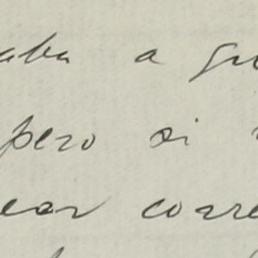 aba a gu
pero si
ear corre